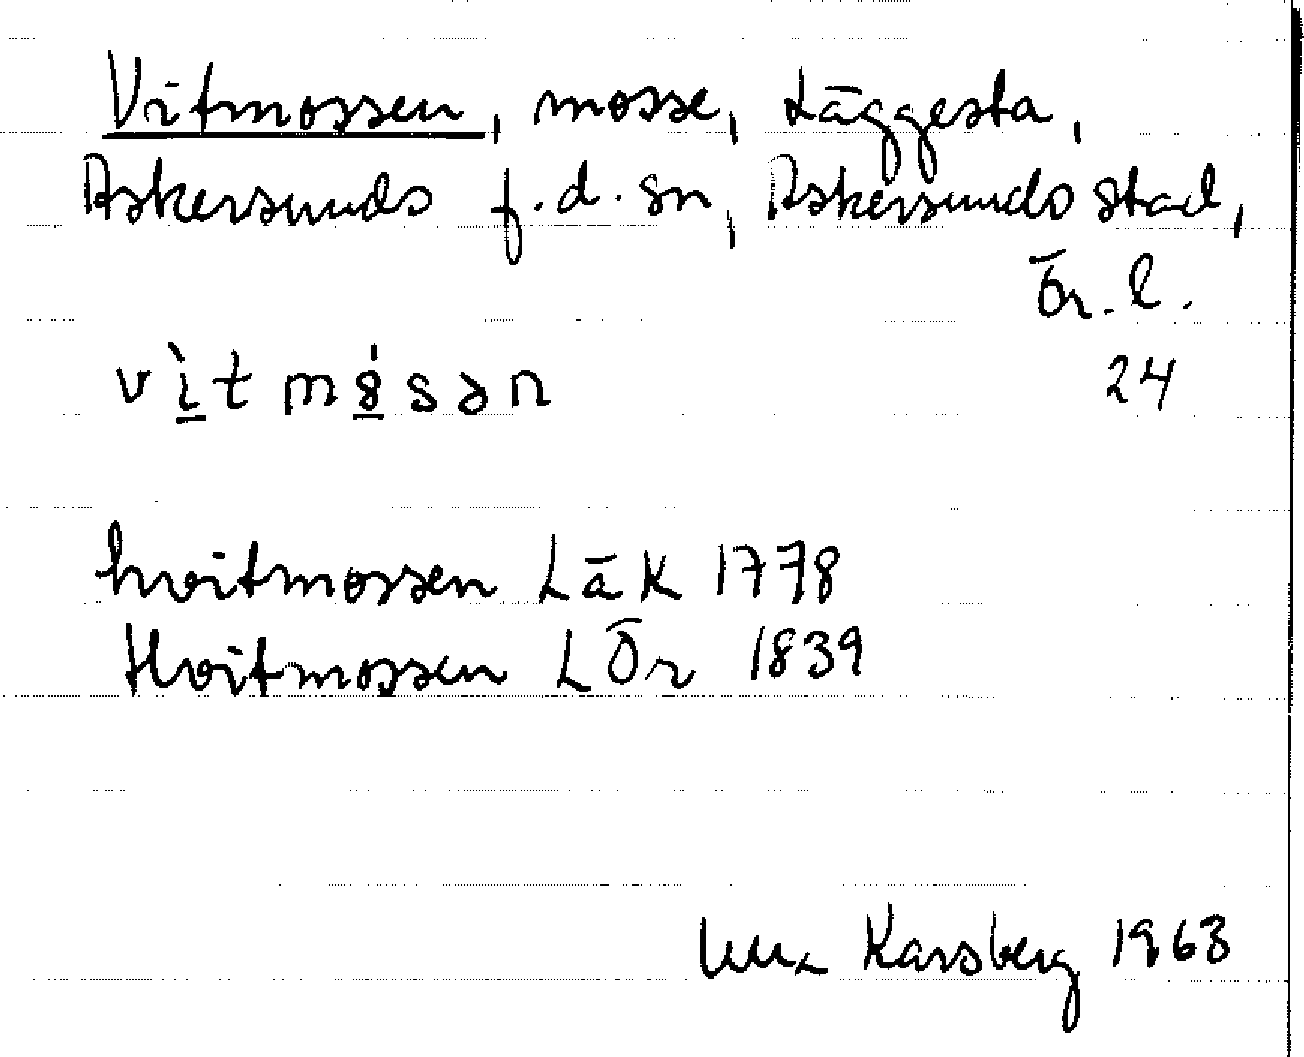 Vitmossen, mosse, Läggesta,
Askersunds f.d. sn, Askersunds stad,
Ör. l.
24
hvitmossen LäK 1778
Hvitmossen LÖr 1839
Karsberg 1963